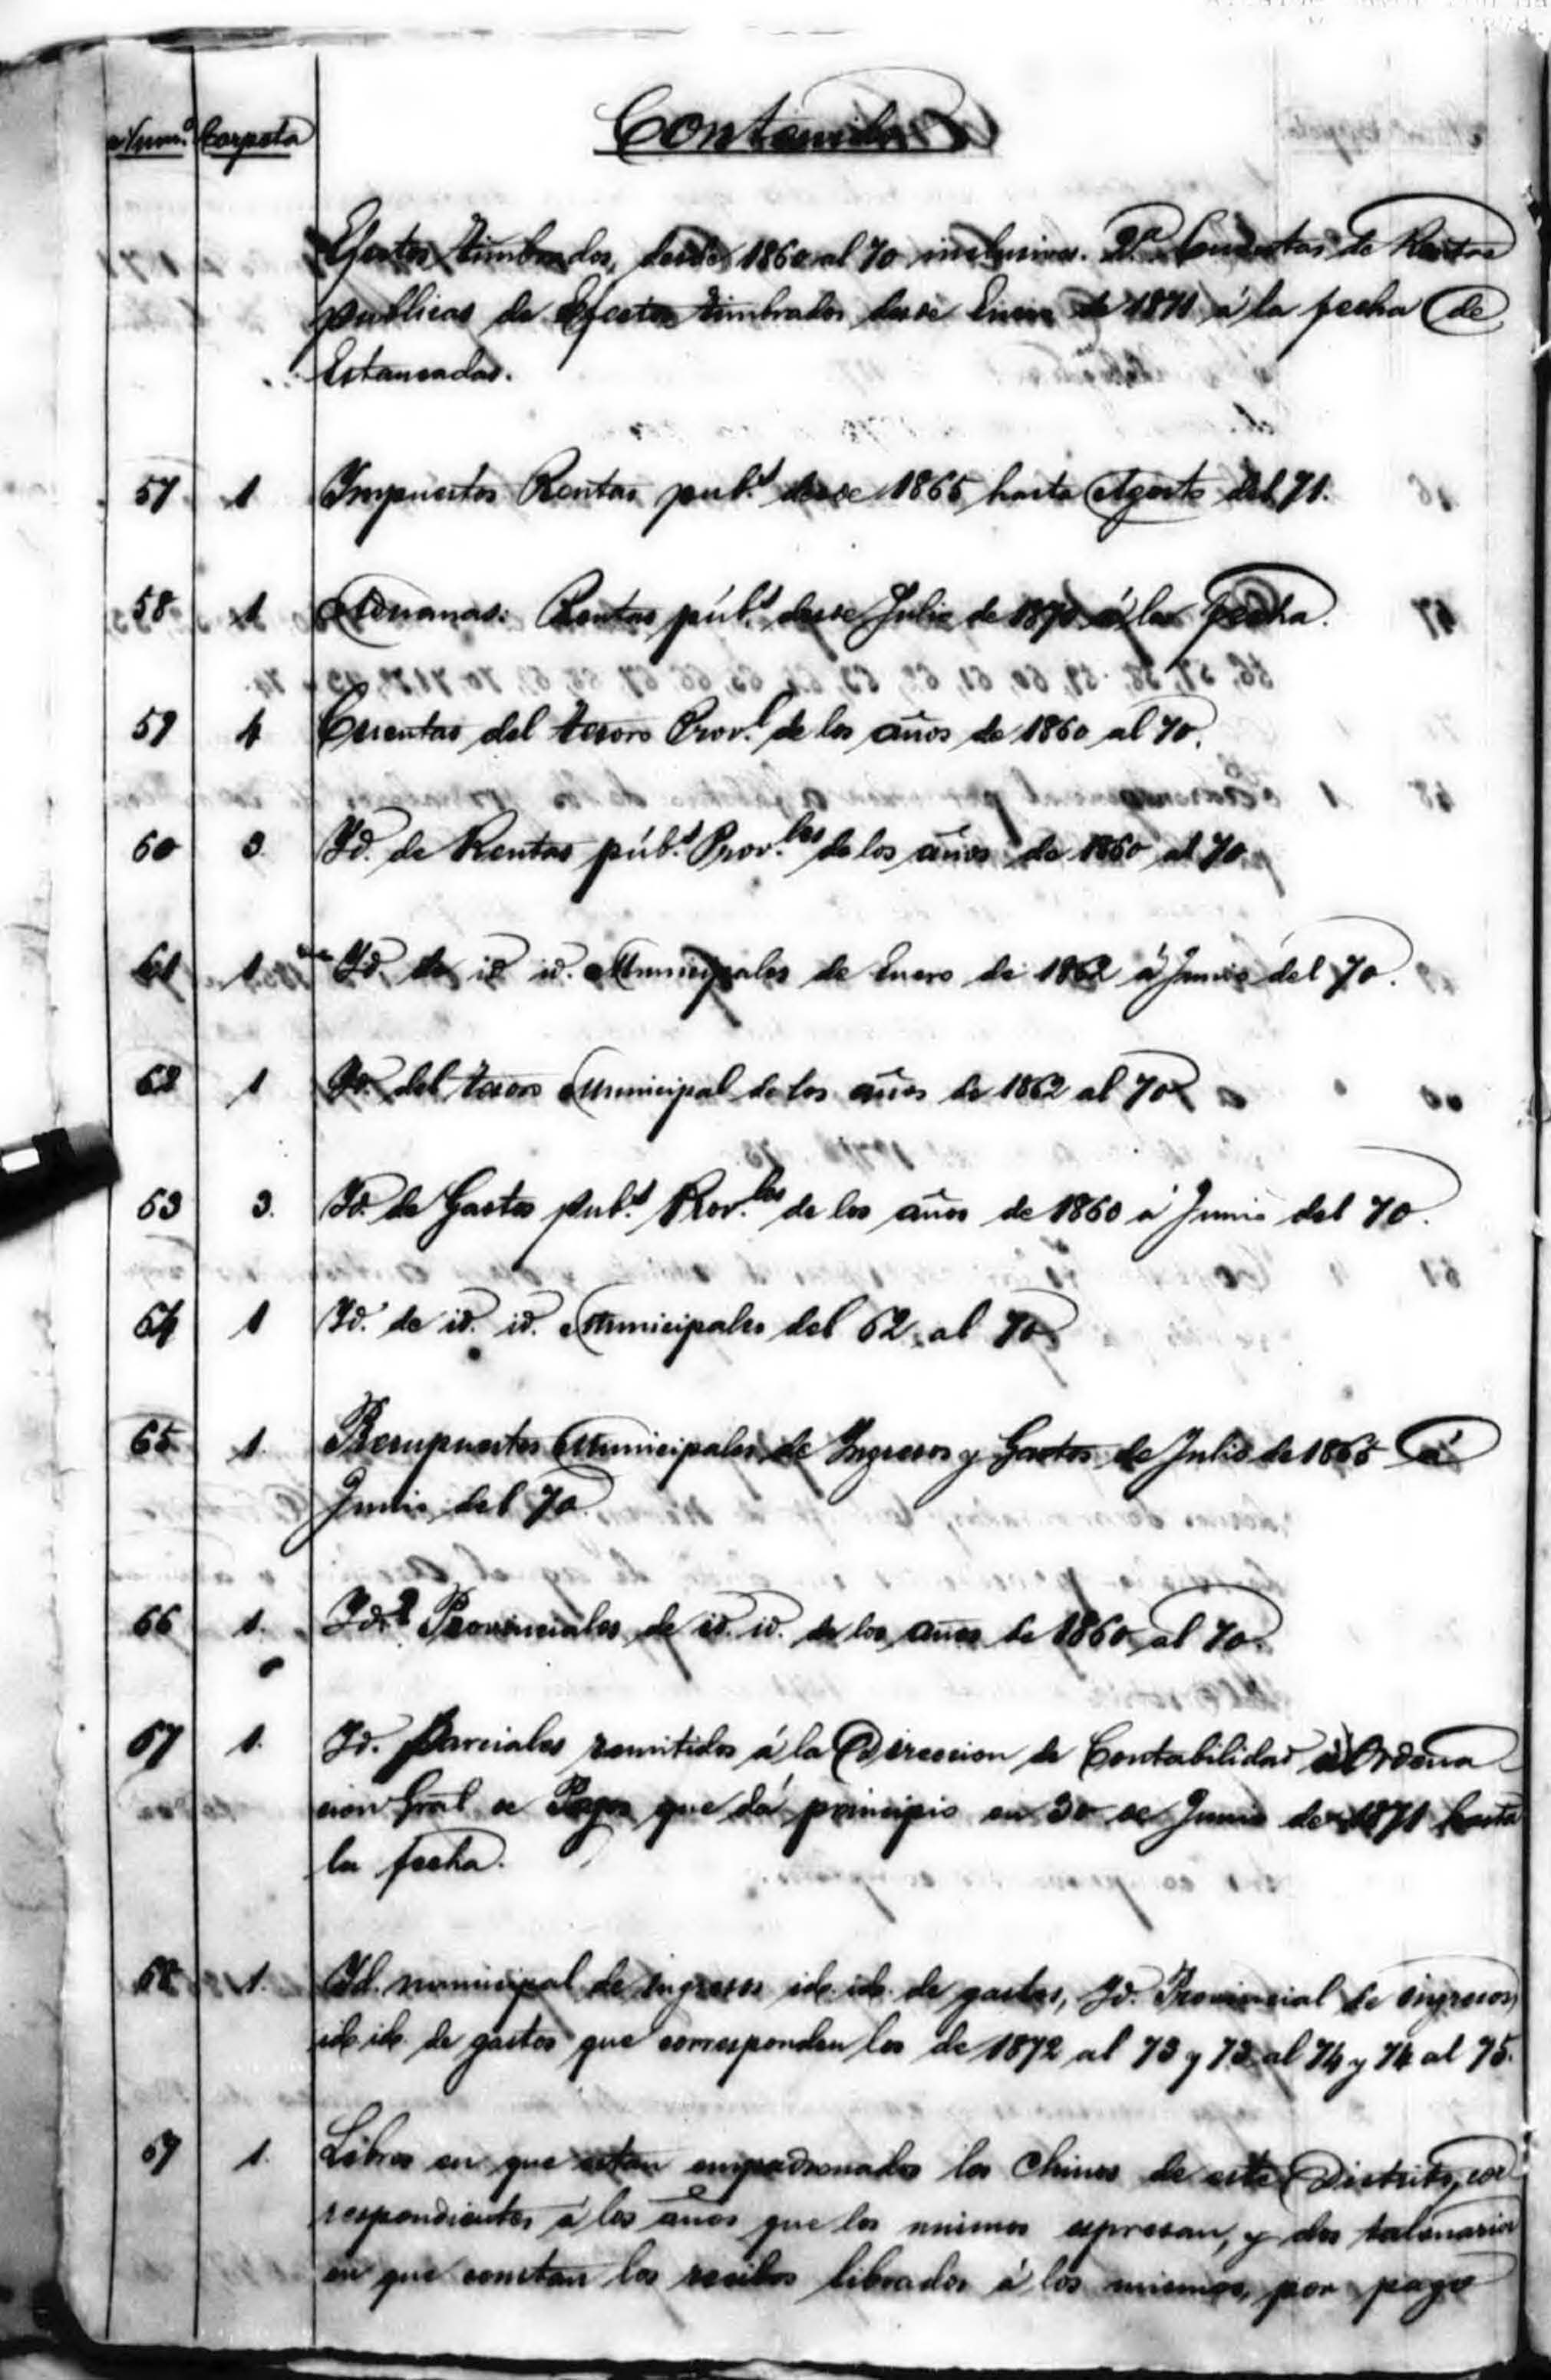 Num.º Carpeta Contenido
Efectos timbrados, desde 1860 al 70 inclusives. Id. Cuentas de Rentas
publicas de Efectos timbrados desde Enero de 1871 á la fecha de
Estancadas.
57 1 Impuestos Rentas pub.s desde 1865 hasta Agosto del 71.
58 1 Aduanas: Rentas púb.s desde Julio de 1870 á la fecha.
59 4 Cuentas del tesoro Prov.l de los años de 1860 al 70.
60 3. Id. de Rentas púb.s Prov.les de los años de 1860 al 70
61 1 Id. de id id. Municipales de Enero de 1862 á Junio del 70.
62 1 Id. del tesoro Municipal de los años de 1862 al 70
63 3. Id. de Gastos pub.s Prov.les de los años de 1860 á Junio del 70.
64 1 Id. de id. id. Municipales del 62 al 70
65 1. Presupuestos Municipales de Ingresos y Gastos de Julio de 1865 á
Junio del 70.
66 1. Id. Provinciales de id. id. de los años de 1860 al 70.
67 1. Id. Parciales remitidos á la Direccion de Contabilidad á Ordena
cion Gral de Pagos que dá principio en 30 de Junio de 1871 hasta
la fecha.
68 1. Id. municipal de ingresos id. id. de gastos, Id. Provincial de ingresos
id. id. de gastos que corresponden los de 1872 al 73 y 73 al 74 y 74 al 75.
69 1. Libros en que estan empadronados los Chinos de este Distrito, cor
respondientes á los años que los mismos espresan, y dos talonarios
en que constan los recibos librados á los mismos, por pago